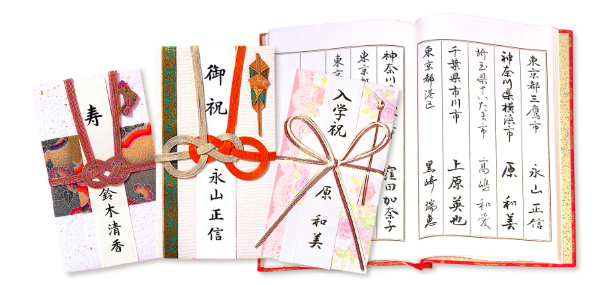 寿
鈴木清香
御祝
永山正信
入学祝
原 和美
東京都三鷹市 永山正信
神奈川県横浜市 原 和美
埼玉県さいたま市 高嶋和愛
千葉県市川市 上原英也
東京都港区 黒崎瑞恵
神奈川 窪田加奈子
東京
東京